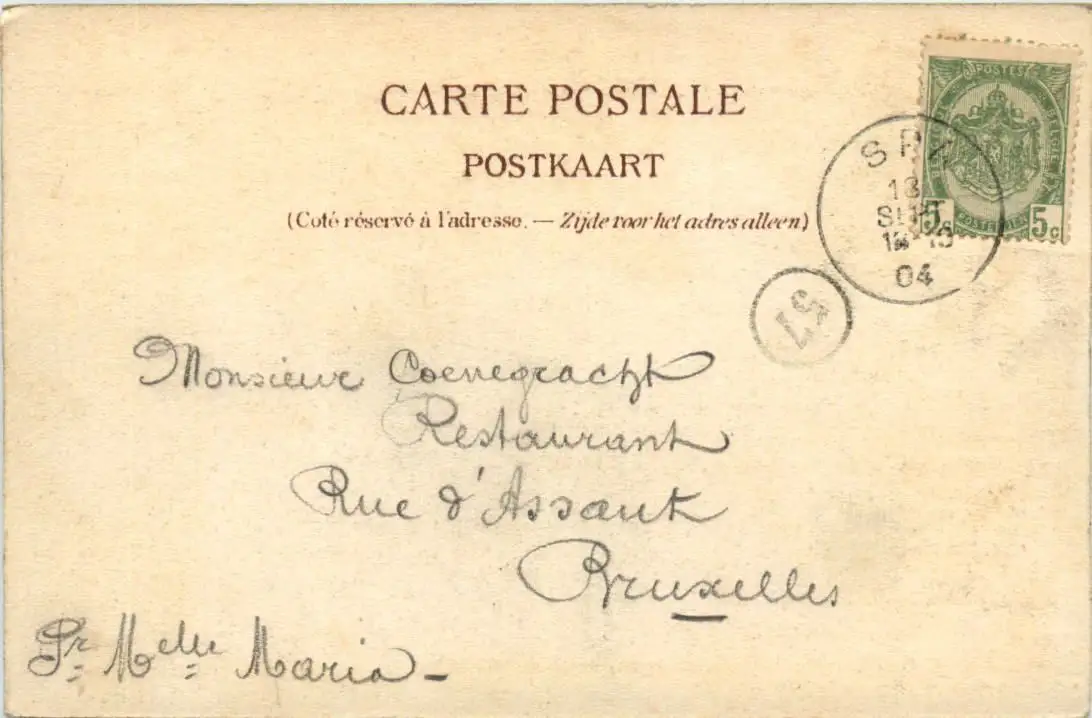 CARTE POSTALE
POSTKAART
(Coté réservé à l'adresse. — Zijde voor het adres alleen)
POSTES
5c 5c
SPA
SEPT
04
57
Monsieur Coenegracht
Restaurant
Rue d'Assaut
Bruxelles
Pr Melle Maria –